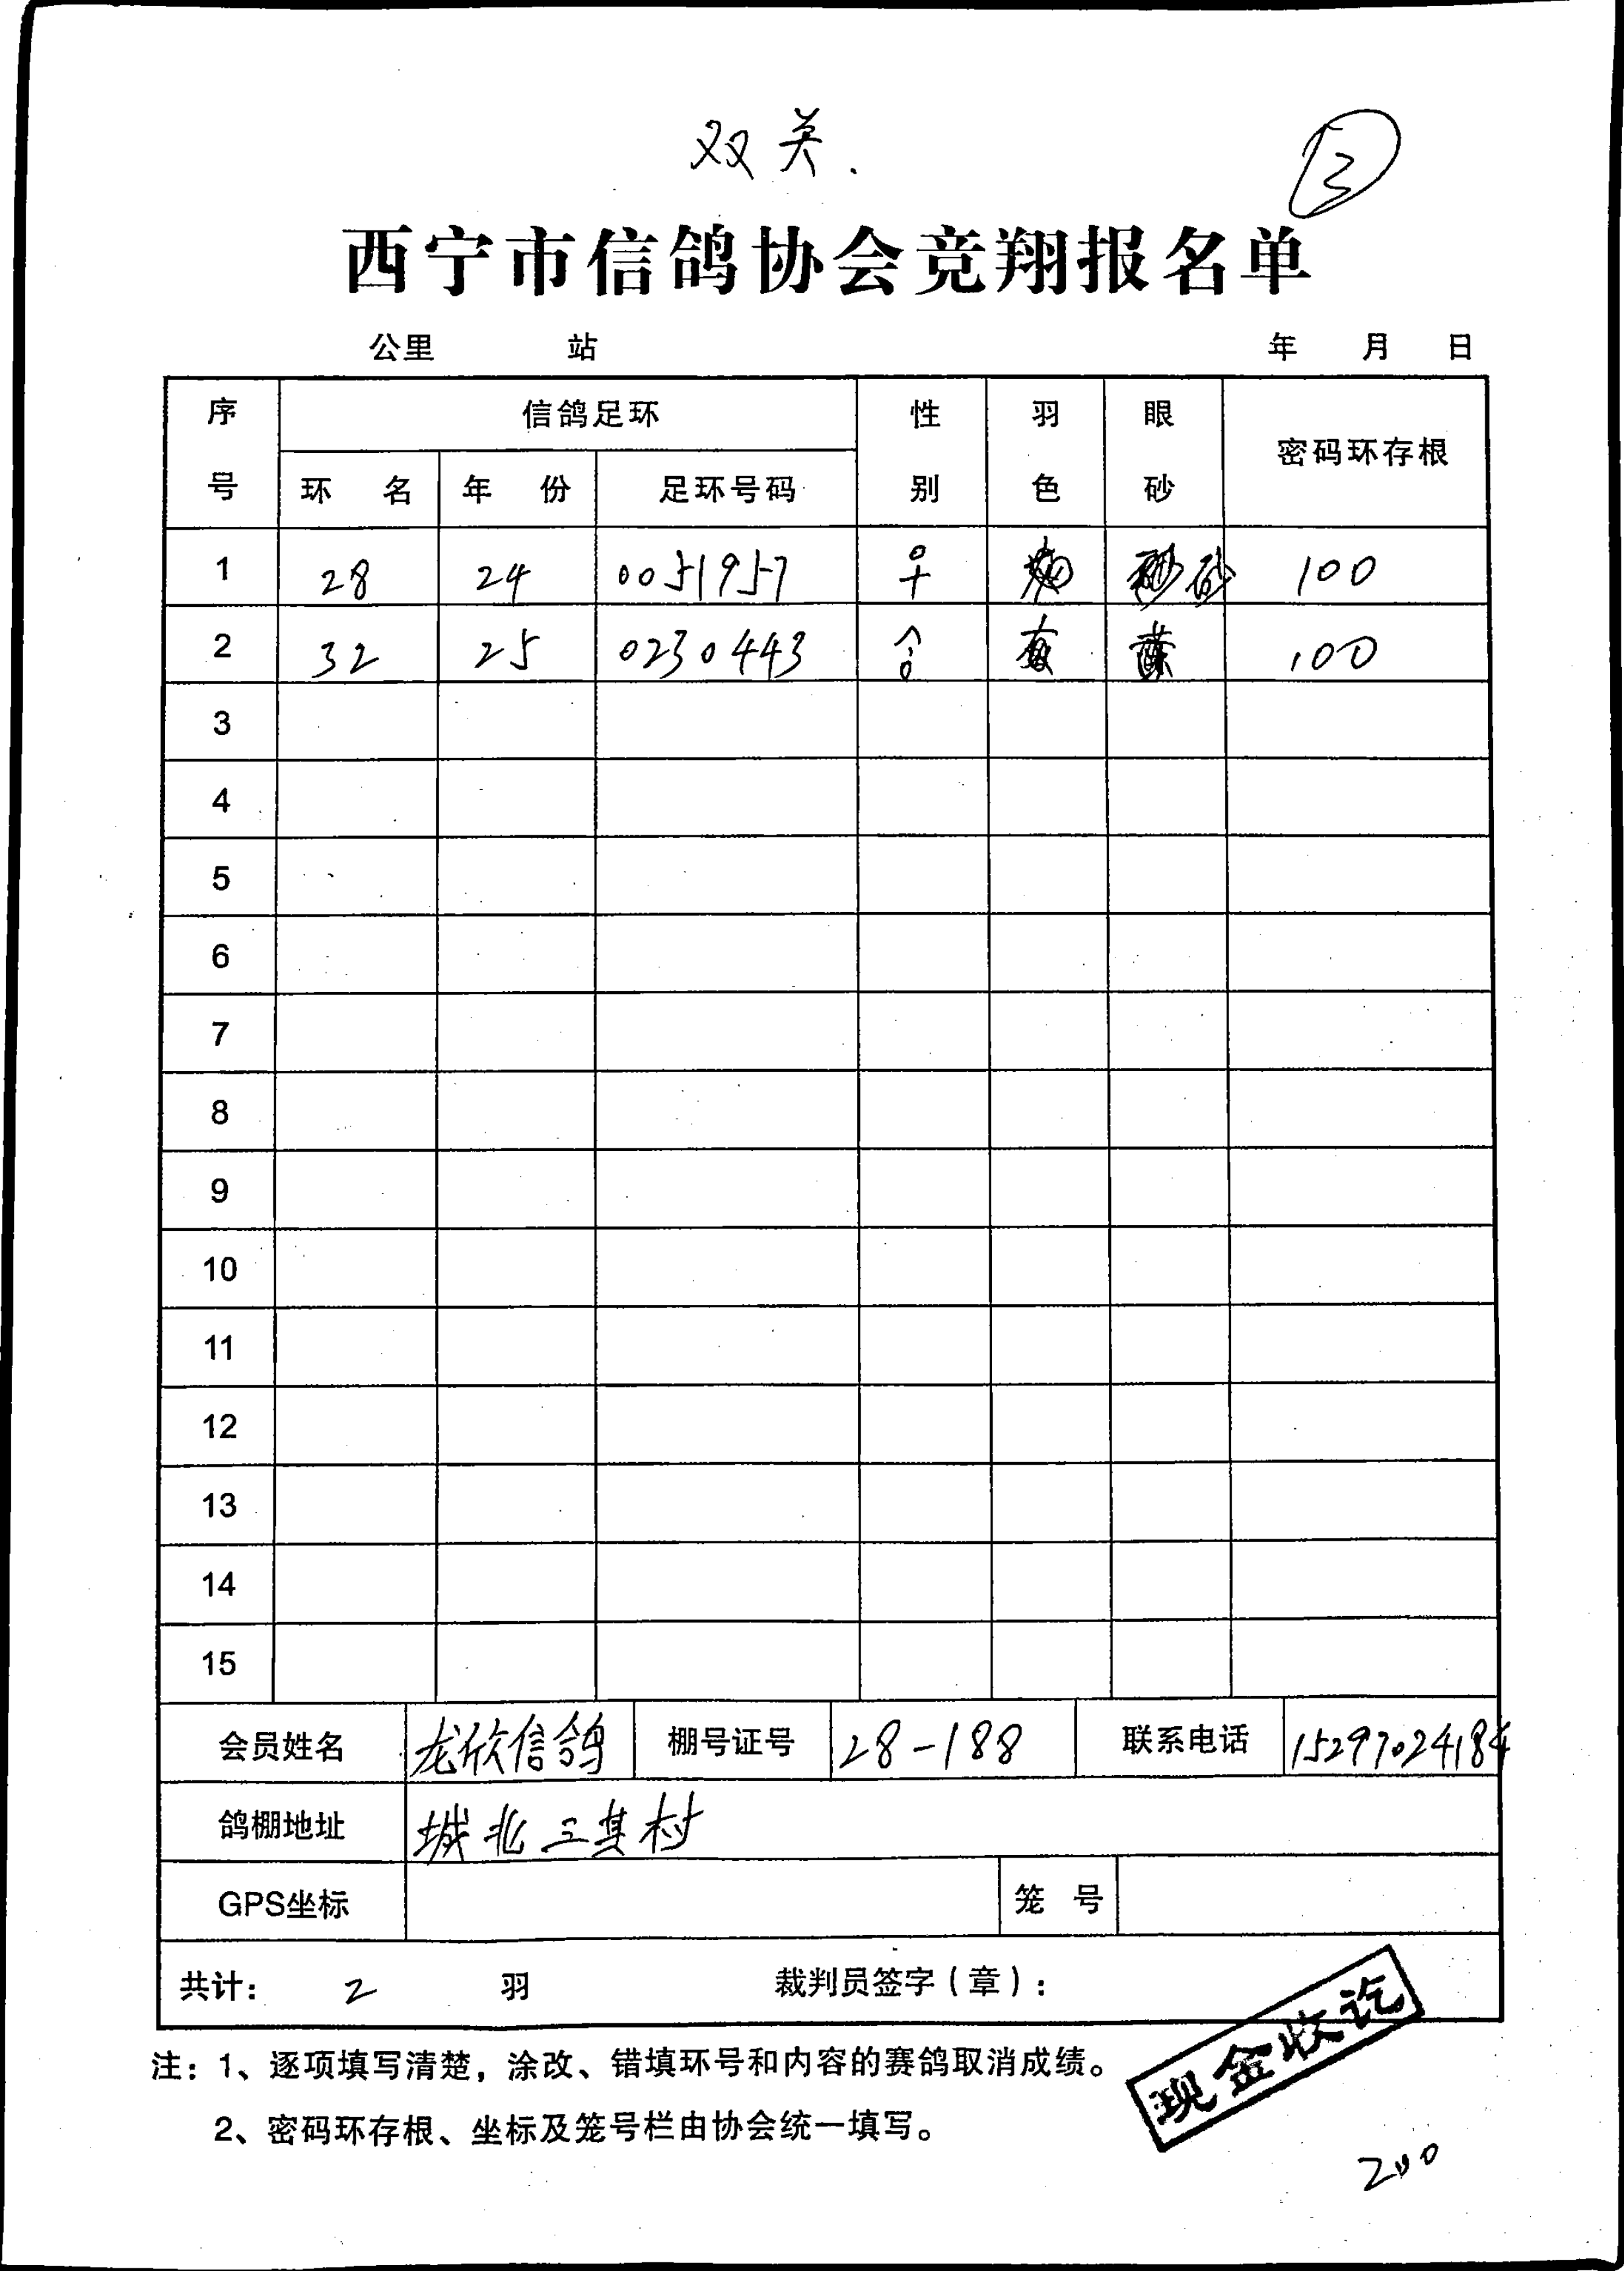 双关.
3
西宁市信鸽协会竞翔报名单
公里 站 年 月 日
序号 信鸽足环 性别 羽色 眼砂 密码环存根
环名 年份 足环号码
1 28 24 0051957 ♀ 砂 100
2 32 25 0230443 ♂ 黄 100
3
4
5
6
7
8
9
10
11
12
13
14
15
会员姓名 龙欣信鸽 棚号证号 28-188 联系电话 15297024184
鸽棚地址 城北三其村
GPS坐标 笼号
共计: 2 羽 裁判员签字(章):
现金收讫
注:1、逐项填写清楚,涂改、错填环号和内容的赛鸽取消成绩。
2、密码环存根、坐标及笼号栏由协会统一填写。
200